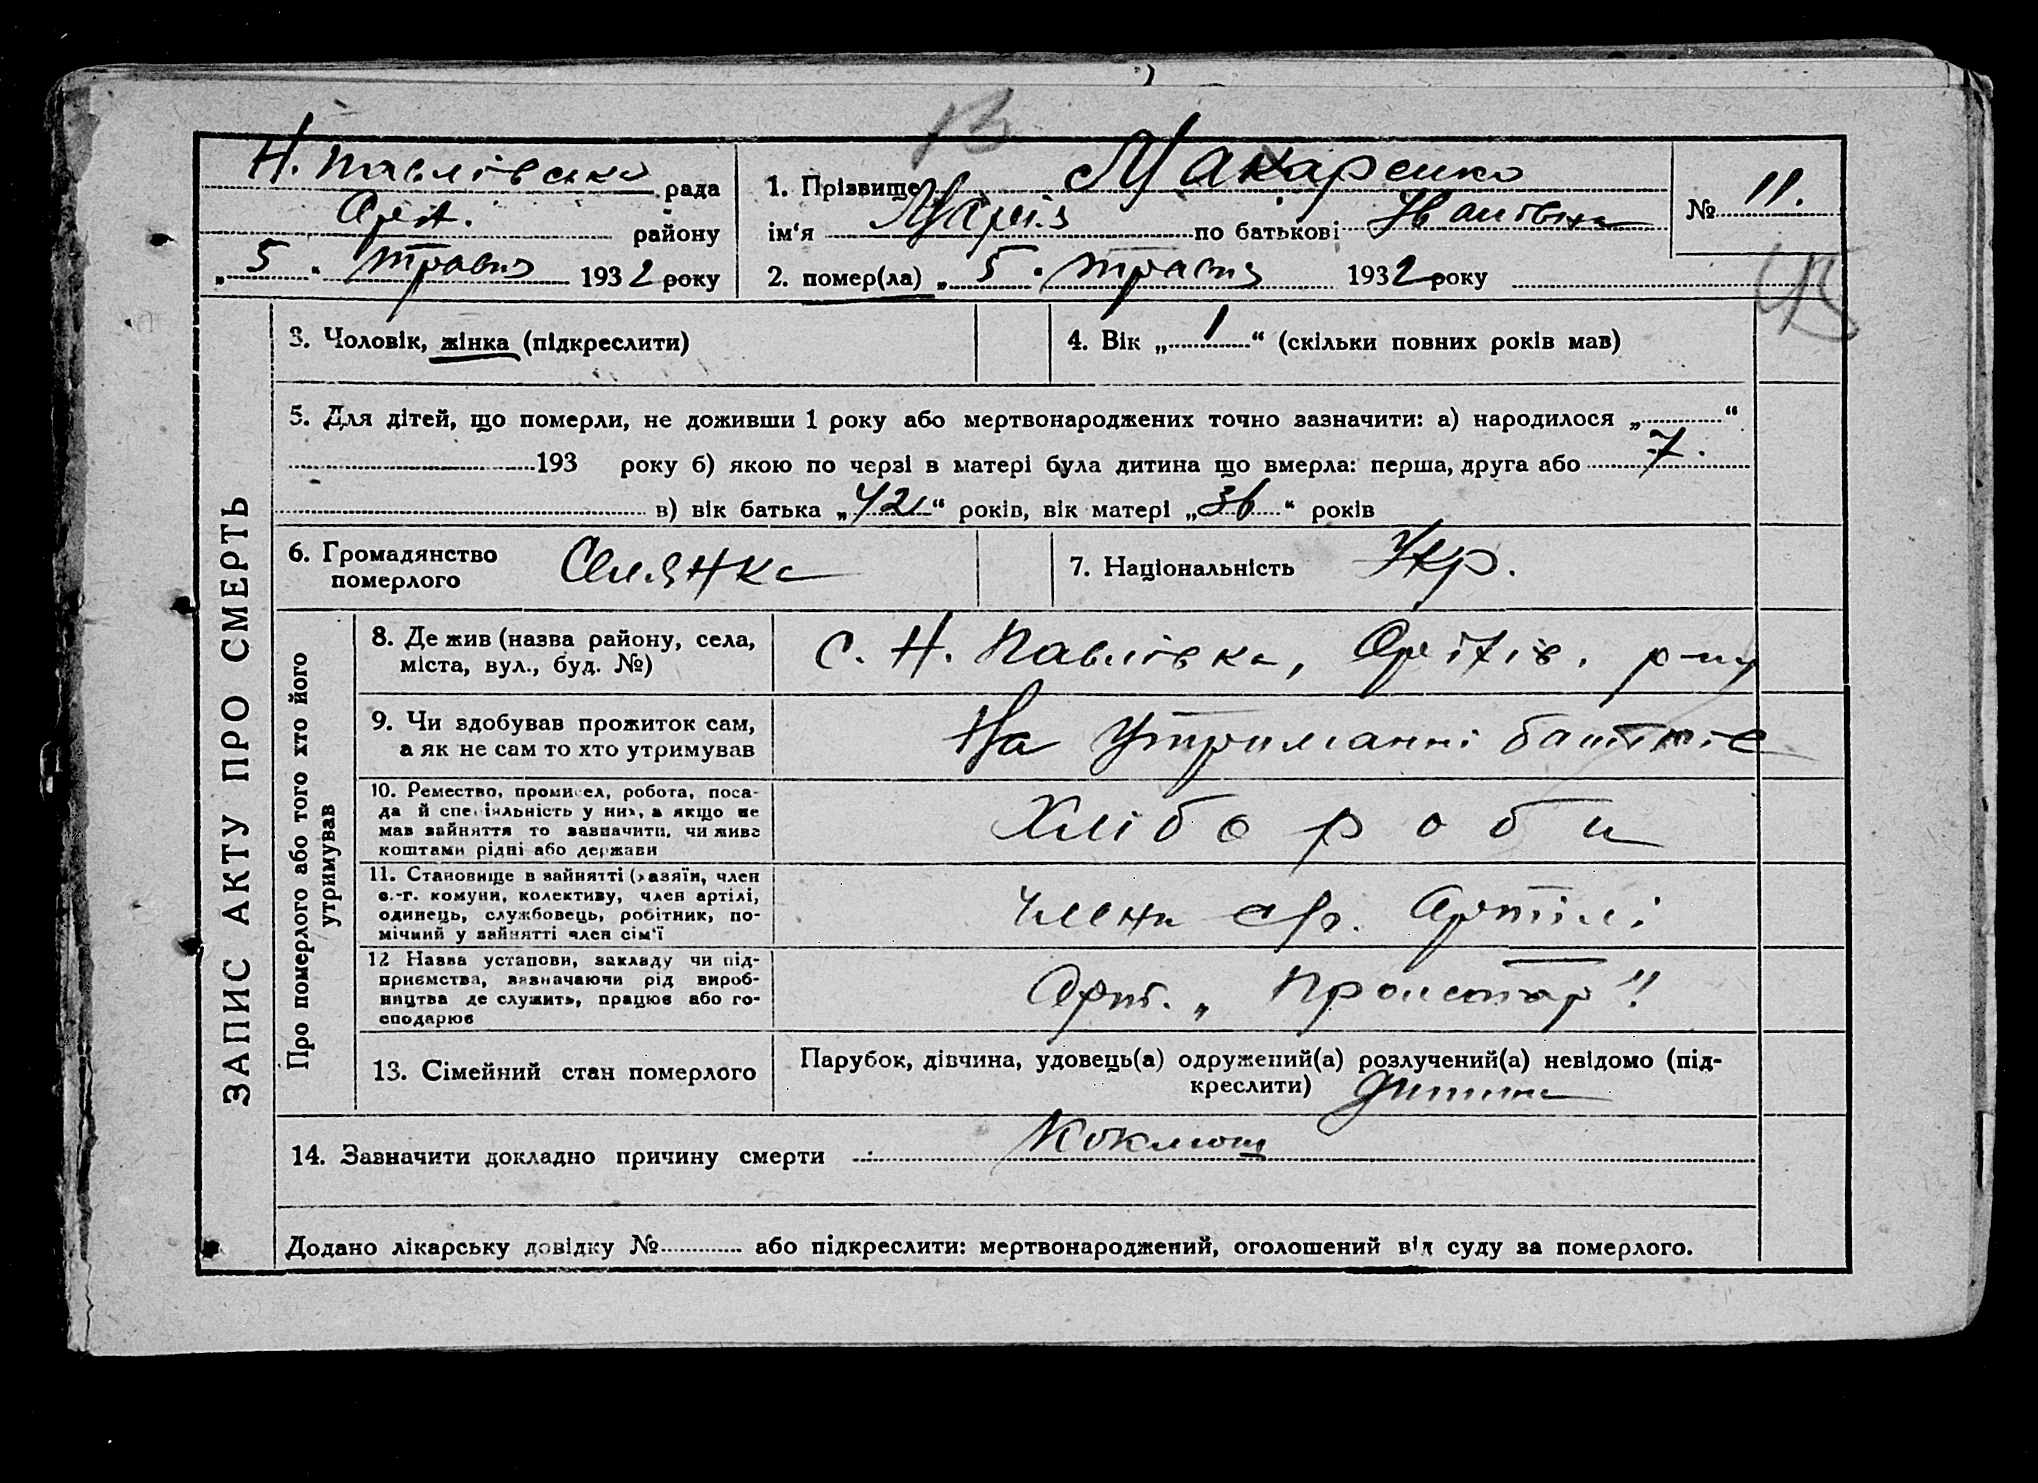 13
Н. Павлівська рада
Оріт. району
„ 5 " травня 1932 року
1. Прізвище Макаренко
ім'я Марія по батькові Івановна
№ 11.
2. помер(ла) „ 5 " травня 1932 року
ЗАПИС АКТУ ПРО СМЕРТЬ
3. Чоловік, жінка (підкреслити)
4. Вік „ 1 " (скільки повних років мав)
5. Для дітей, що померли, не доживши 1 року або мертвонароджених точно зазначити: а) народилося „ "
193 року б) якою по черзі в матері була дитина що вмерла: перша, друга або 7.
в) вік батька „42" років, вік матері „36" років
6. Громадянство померлого Селянка
7. Національність Укр.
Про померлого або того хто його утримував
8. Де жив (назва району, села,
міста, вул., буд. №)
с. Н. Павлівка, Орітів. р-ну
9. Чи здобував прожиток сам,
а як не сам то хто утримував
На утриманні батьків
10. Ремество, промисел, робота, поса-
да й спеціяльність у них, а якщо не
мав зайняття то зазначити, чи живе
коштами рідні або держави
Хлібороби
11. Становище в зайнятті (хазяїн, член
с.-г. комуни, колективу, член артілі,
одинець, службовець, робітник, по-
мічний у зайнятті член сім'ї
члени с/г. Артілі
12 Назва установи, закладу чи під-
приємства, зазначаючи рід вироб-
ництва де служить, працює або го-
сподарює
Арт. „
13. Сімейний стан померлого
Парубок, дівчина, удовець(а) одружений(а) розлучений(а) невідомо (під-
креслити) дитина
14. Зазначити докладно причину смерти Коклюш
Додано лікарську довідку № або підкреслити: мертвонароджений, оголошений від суду за померлого.